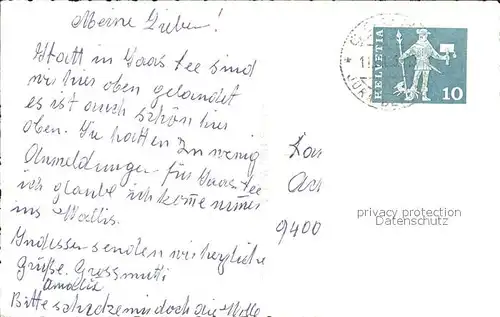 Meine Lieben!
Statt in Saas Fee sind
wir hier oben gelandet
es ist auch schön hier
oben. Sie hatten zu wenig
Anmeldungen für Saas Fee
ich glaube ich kome nimer
ins Wallis.
Indessen senden wir herzliche
Grüße. Grossmutti
Amalie
Bitte schicke mir doch die Wolle
HELVETIA
10
9400
privacy protection
Datenschutz